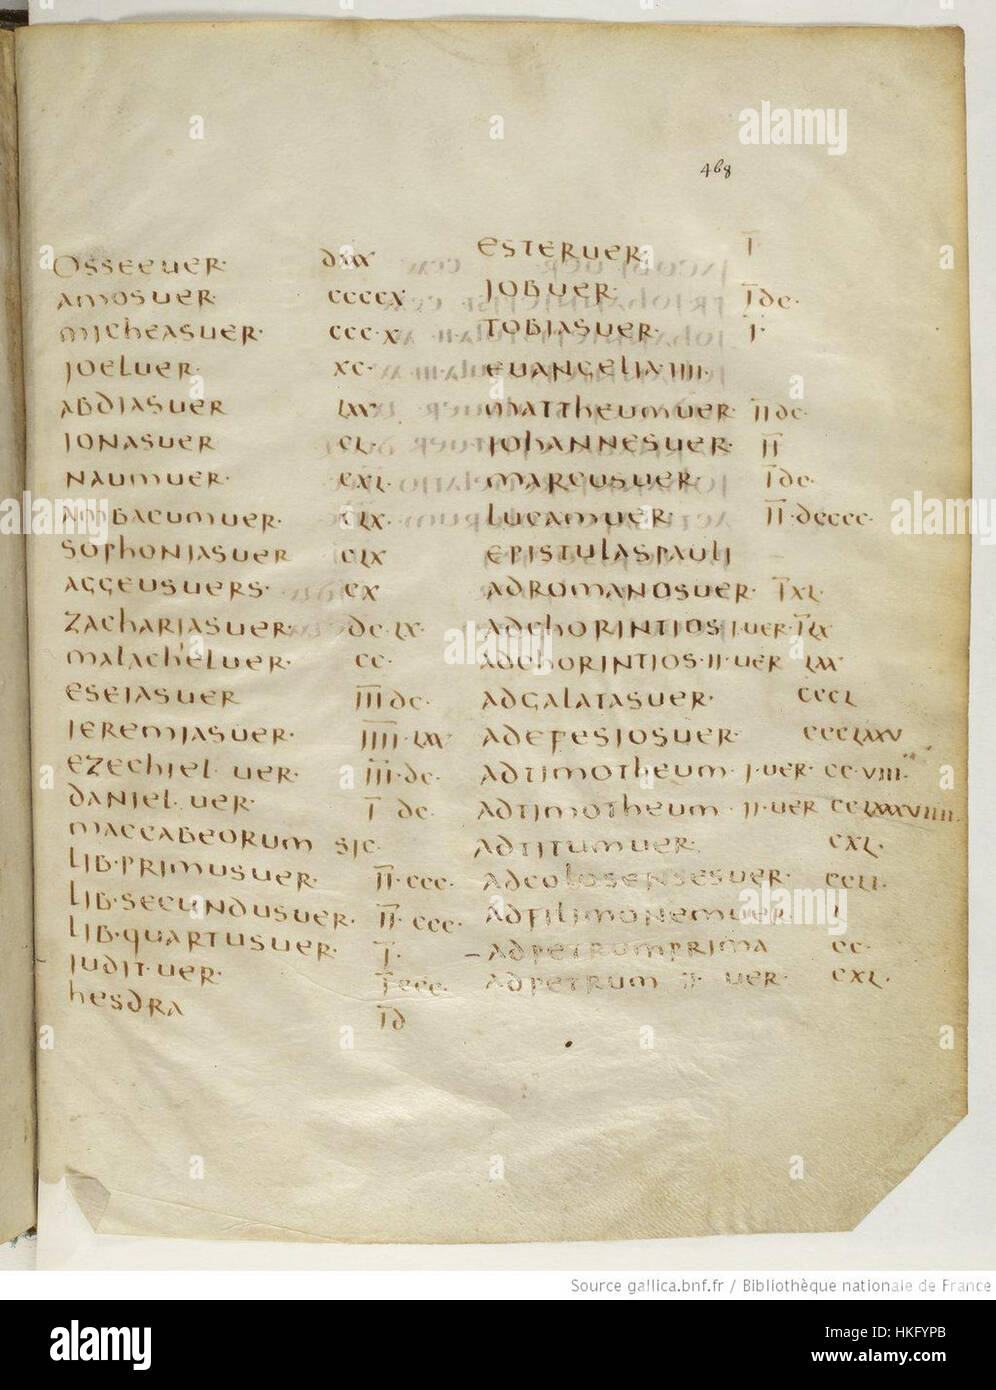 468
OSSEE UER· dxxx
AMOS UER· ccccx
MICHEAS UER· ccc·x
IOEL UER· xc·
ABDIAS UER lxx
IONAS UER cl·
NAUM UER· cxl·
AMBACUM UER· clx·
SOPHONIAS UER clx
AGGEUS UERS· cx
ZACHARIAS UER· dc·lx·
MALACHEL UER· cc·
ESEIAS UER I̅I̅I̅ dc·
IEREMIAS UER· I̅I̅I̅I̅·lxx
EZECHIEL UER· I̅I̅I̅·dc·
DANIEL· UER· I̅ dc·
MACCABEORUM SIC·
LIB·PRIMUS UER· I̅I̅·ccc·
LIB·SECUNDUS UER· I̅I̅·ccc·
LIB·QUARTUS UER· I̅·
IUDIT·UER· I̅ccc·
HESDRA I̅d
ESTER UER· I̅
IOB UER· I̅dc·
TOBIAS UER· I̅·
EUANGELIA IIII·
MATTHEUM UER· I̅I̅dc·
IOHANNES UER· I̅I̅
MARCUS UER· I̅dc·
LUCAM UER· I̅I̅·dcccc·
EPISTULAS PAULI
AD ROMANOS UER· I̅xl·
AD CHORINTIOS·I·UER·I̅lx
AD CHORINTIOS·II·UER lxx
AD GALATAS UER· cccl
AD EFESIOS UER· ccclxxv
AD TIMOTHEUM·I·UER· ccviii·
AD TIMOTHEUM·II·UER cclxxxviiii·
AD TITUM UER· cxl·
AD COLOSENSES UER· ccli·
AD FILIMONEM UER· l
– AD PETRUM PRIMA cc·
AD PETRUM II· UER· cxl·
Source gallica.bnf.fr / Bibliothèque nationale de France
alamy
Image ID: HKFYPB
www.alamy.com